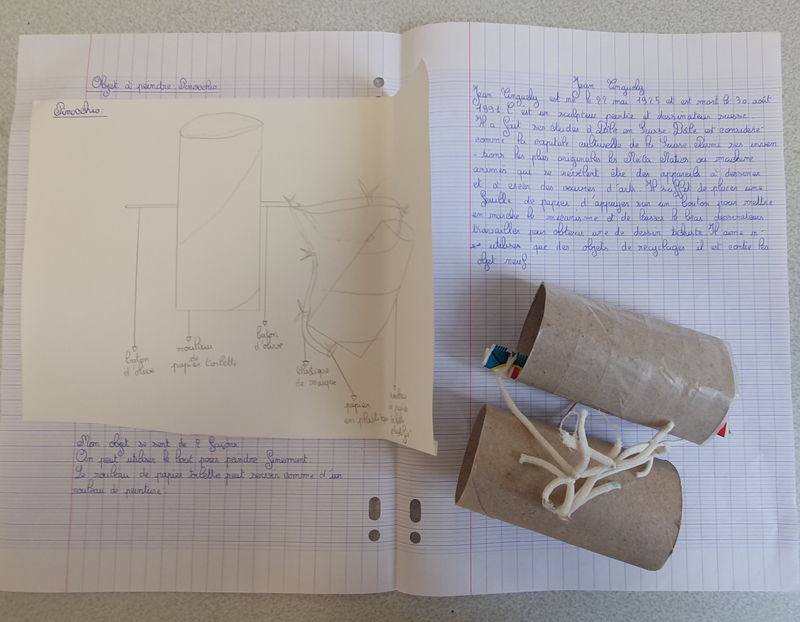 Objet à peindre : Pinocchio
Pinocchio
bâton
d'olive
rouleau
de
papier toilette
bâton
d'olive
élastique
de masque
papier
en plastique
Mon objet se sert de 2 façons
On peut utiliser le bout pour peindre finement.
Le rouleau de papier toilette peut servir comme d'un
rouleau de peinture.
Jean Tinguely
Jean Tinguely est né le 22 mai 1925 et est mort le 30 août
1991 C'est un sculpteur peintre et dessinateur suisse
Il a fait ses études à Bâle en Suisse. Bâle est considéré
comme la capitale culturelle de la Suisse. Parmi ses inven
-tions les plus originales les Méta Matics ou machine
animés qui se révèlent être des appareils à dessiner
et à créer des œuvres d'arts. Il suffit de placer une
feuille de papier d'appuyer sur un bouton pour mettre
en marche le mécanisme et de laisser le bras dessinateur
travailler pour obtenir une de dessin Il aime n-
utiliser que des objets de recyclages il est contre les
objet neuf